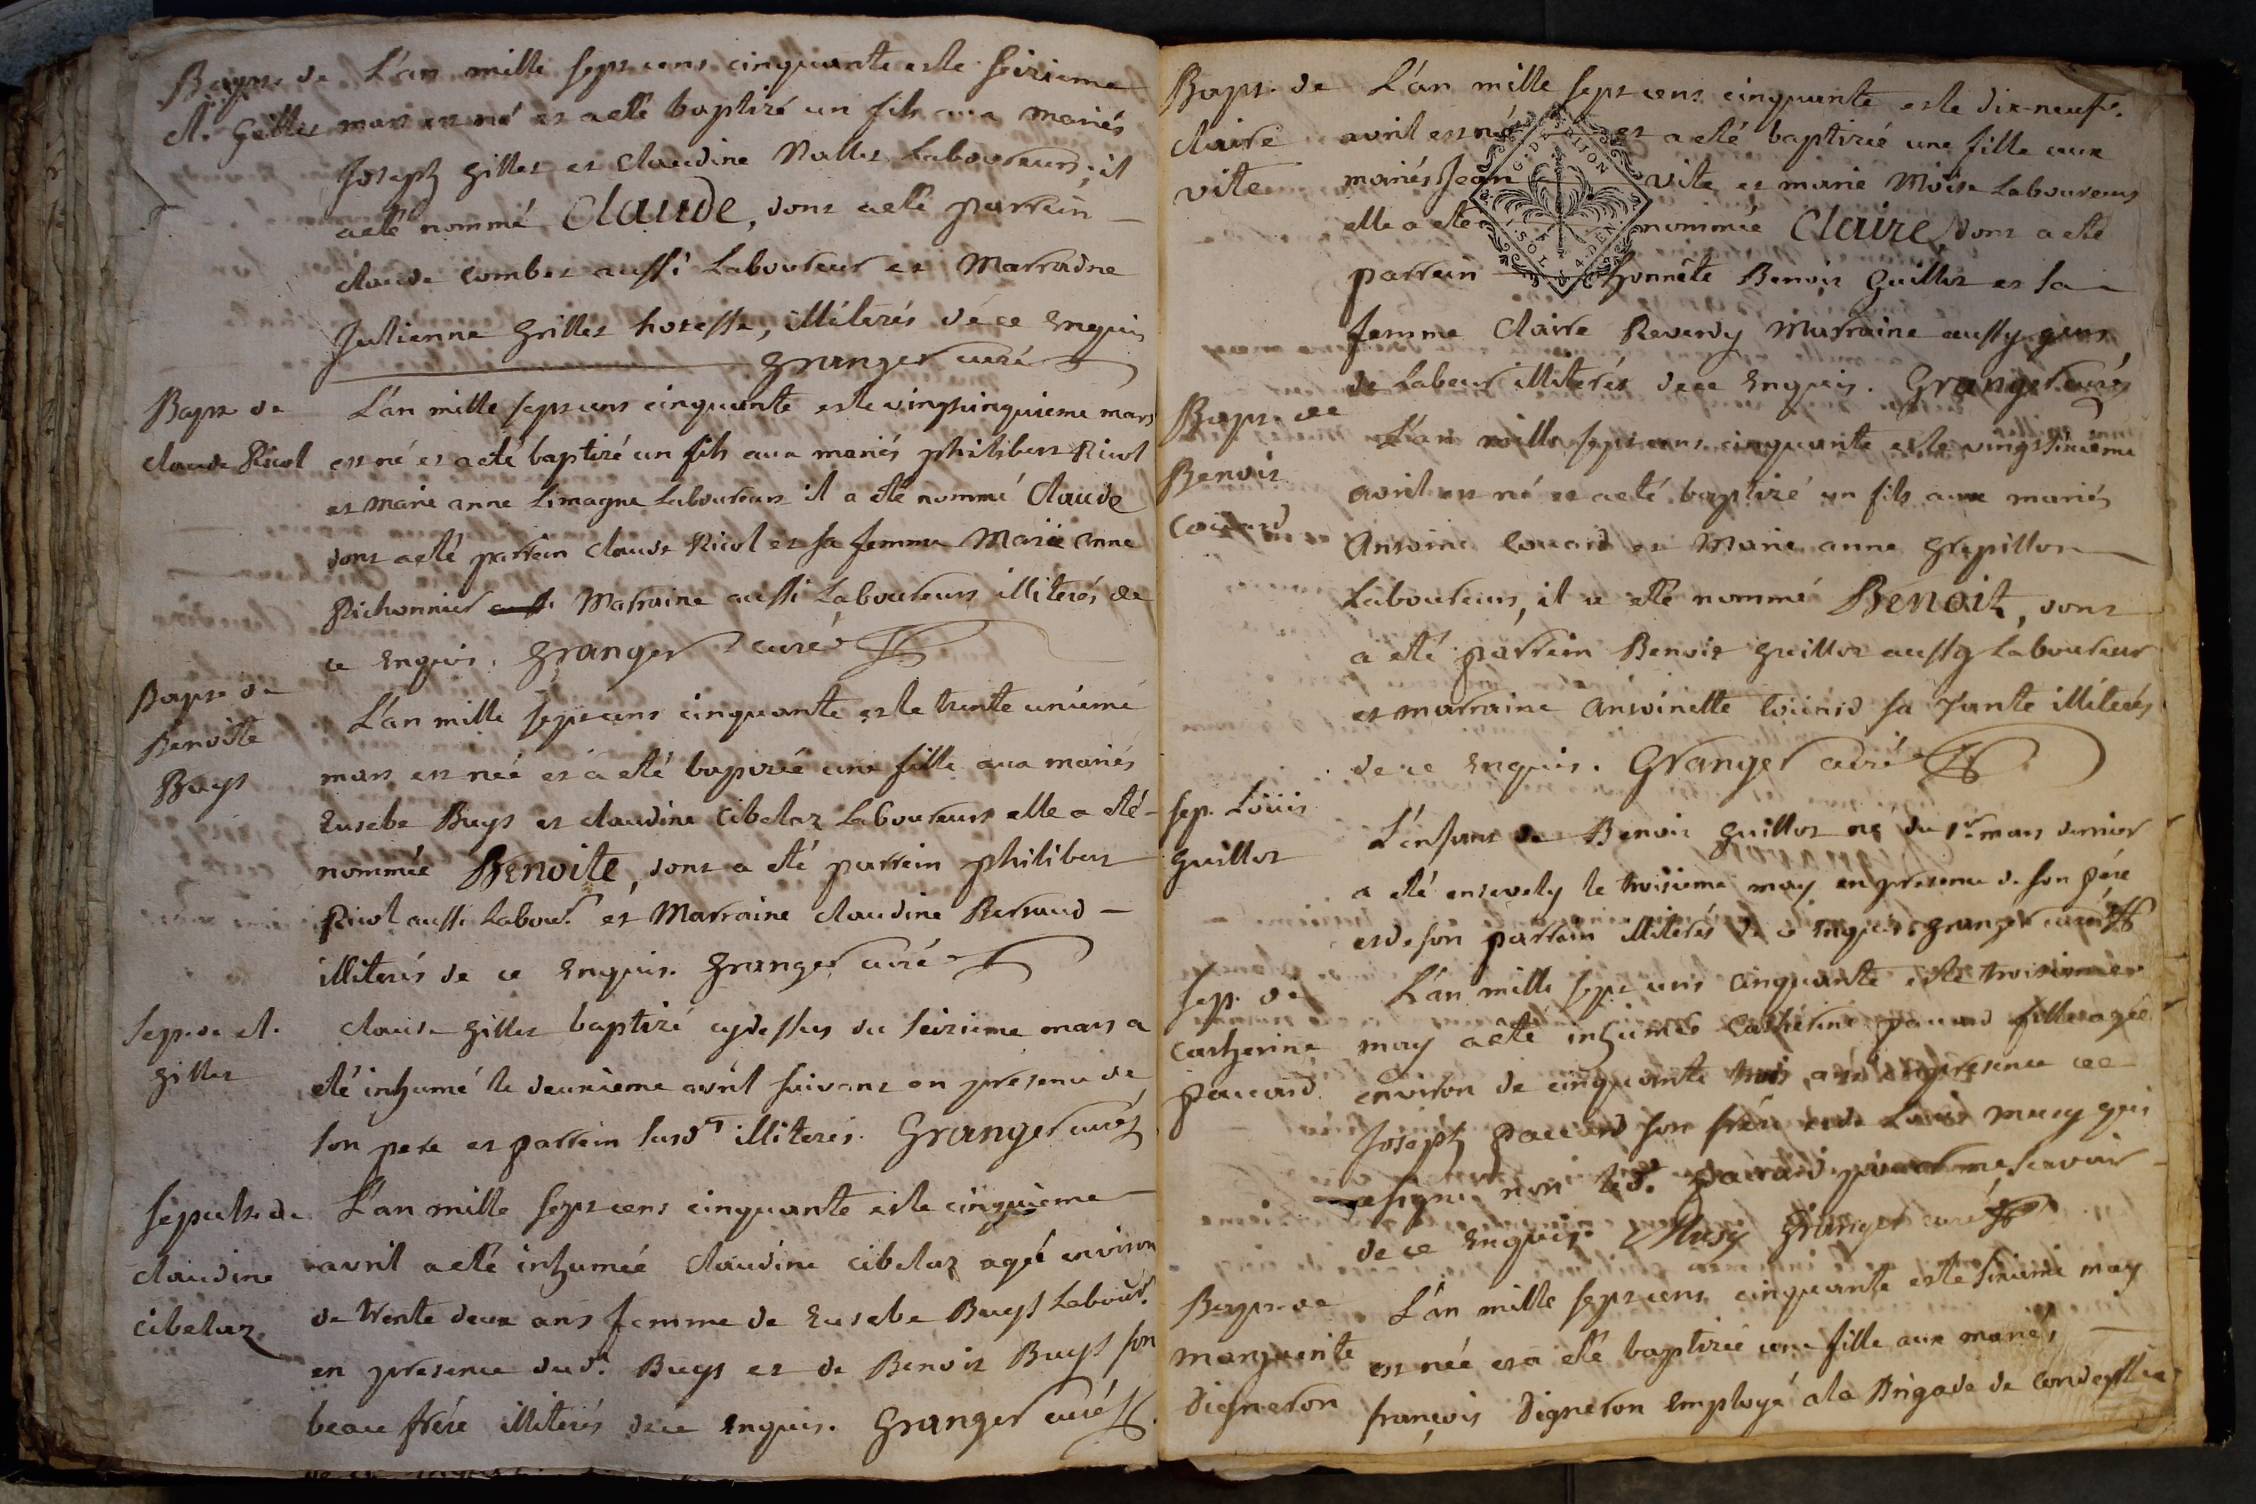 Bapt. de
cl. Gillet
L'an mille sept cens cinquante et le seizieme
mars est né et a eté baptizé un fils aux mariés
Joseph Gillet et Claudine Nallet Laboureurs; il
a eté nommé Claude, dont a eté parrein
claude combet aussi Laboureur et Marradne
Julienne Grillet hotesse, illiterés de ce Enquis
Granger curé
Bapt. de
claude Ricol
L'an mille sept cens cinquante et le vingtcinquieme mars
est né et a eté baptizé un fils aux mariés philibert Ricol
et marie anne Limagne Laboureurs il a eté nommé Claude
dont a eté parrein claude Ricol et sa femme Marie anne
Pichonnier Marraine aussi Laboureurs illiterés de
ce Enquis. Granger curé
Bapt. de
Benoite
Buys
L'an mille sept cens cinquante et le trente unieme
mars est née et a eté baptizée une fille aux mariés
Eusebe Buys et claudine Cibelaz Laboureurs elle a eté
nommée Benoite, dont a eté parrein philibert
Ricol aussi Labour. et Marraine claudine Bersaud
illiterés de ce Enquis. Granger curé
Sep. de cl.
Gillet
claude Gillet baptizé cydessus du seizieme mars a
eté inhumé le deuxieme avril suivant en presence de
son pere et parrein susd. illiterés. Granger curé
Sepult. de
claudine
cibelaz
L'an mille sept cens cinquante et le cinquieme
avril a eté inhumée claudine cibelaz agée environ
de trente deux ans femme de Eusebe Buys Labour.
en presence dud. Buys et de Benoit Buys son
beau frére illiterés de ce Enquis. Granger curé
Bapt. de
claire
vite
L'an mille sept cens cinquante et le dix-neuf.
avril est né et a eté baptizée une fille aux
mariés Jean vite et marie Moise Laboureurs
elle a eté nommée Claire, dont a eté
parrein honnête Benoit Guillot et sa
femme Claire Reverdy Marraine aussy gens
de Labeur illiterés de ce Enquis. Granger curé
G. DE DIJON
1. SOL. 4. DEN.
Bapt. de
Benoit
Coüard
L'an mille sept cens cinquante et le vingt sixieme
avril est né et a eté baptizé un fils aux mariés
Antoine Coüard et Marie anne Grepillon
Laboureurs, il a eté nommé Benoit, dont
a eté parrein Benoit Guillot aussy Laboureur
et marraine Antoinette Coüard sa Tante illiterés
de ce Enquis. Granger curé
Sep. Loüis
Guillot
L'enfant de Benoit Guillot né du 1er mars dernier
a eté ensevely le troisieme may en presence de son pére
et de son parrein illiterés de ce Enquis. Granger curé
Sep. de
Catherine
Paccard
L'an mille sept cens cinquante et le troisieme
may a eté inhumée Catherine paccard fille agée
environ de cinquante trois ans en presence de
Joseph Paccard son frére et de Louis Musy qui
a signé non led. Paccard pour ne scavoir
de ce Enquis. Musy Granger curé
Bapt. de
marguerite
Digneron
L'an mille sept cens cinquante et le sixieme may
est née et a eté baptizée une fille aux mariés
françois Digneron Employé a la Brigade de